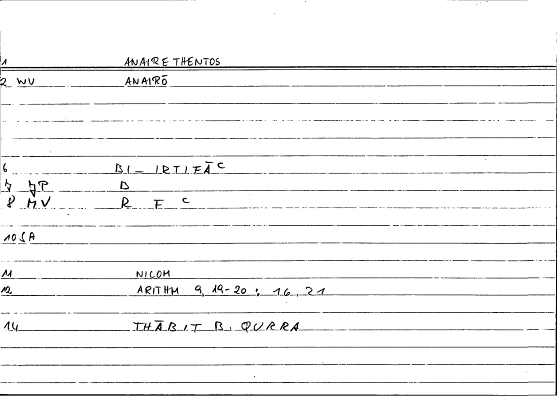 1 ANAIRETHENTOS
2 WV ANAIRŌ
6 BI-IRTIFĀC
7 JP B
8 MV R F C
10 SA
11 NICOM
12 ARITHM 9, 19-20 : 16, 21
14 THĀBIT B. QURRA